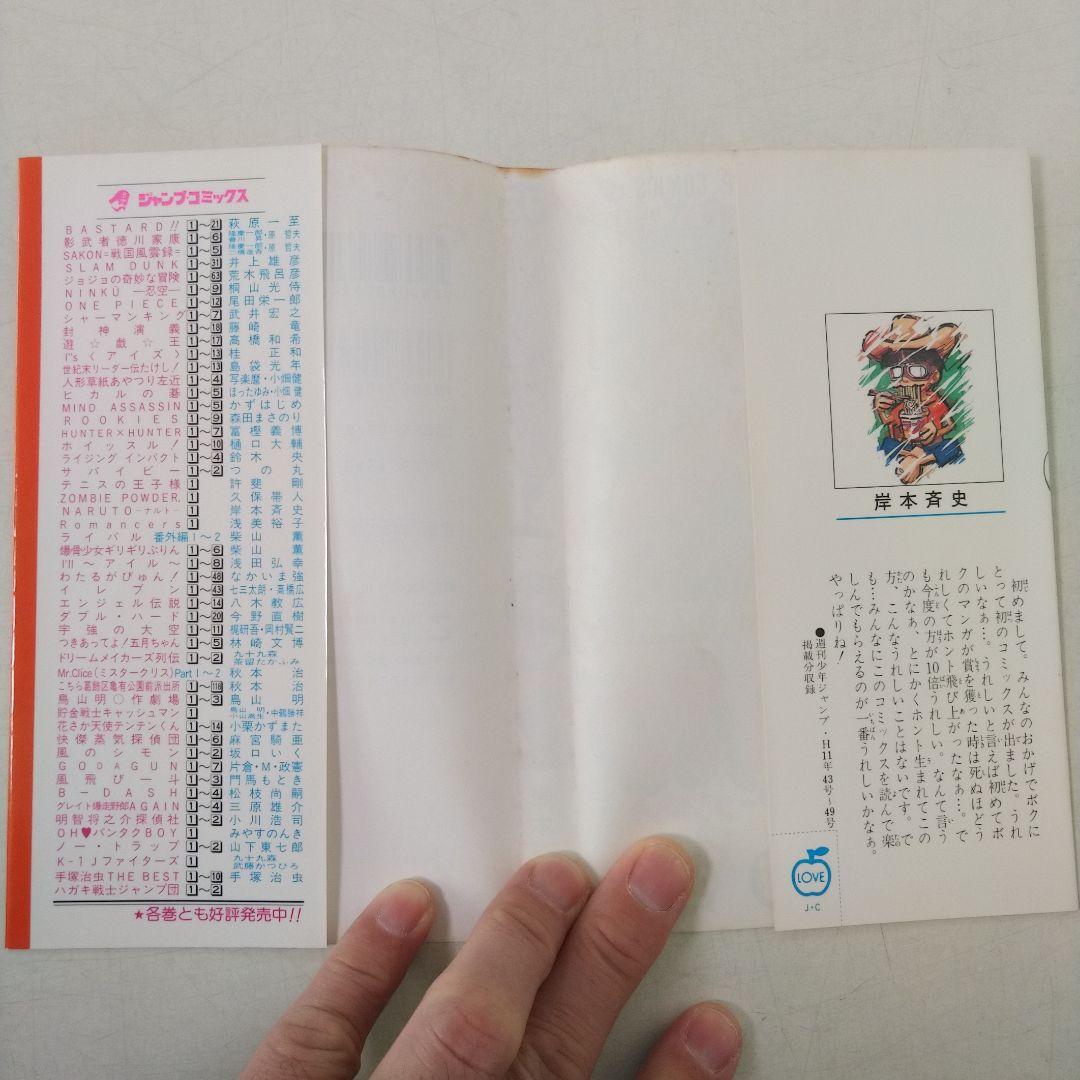 ジャンプ・コミックス
BASTARD!! 1〜21 萩原一至
影武者徳川家康 1〜6 隆慶一郎・原哲夫
SAKON=戦国風雲録= 1〜5 隆慶一郎・原哲夫
SLAM DUNK 1〜31 井上雄彦
ジョジョの奇妙な冒険 1〜63 荒木飛呂彦
NINKŪ―忍空― 1〜9 桐山光侍
ONE PIECE 1〜12 尾田栄一郎
シャーマンキング 1〜7 武井宏之
封神演義 1〜18 藤崎竜
遊☆戯☆王 1〜17 高橋和希
I"s〈アイズ〉 1〜13 桂正和
世紀末リーダー伝たけし! 1〜13 島袋光年
人形草紙あやつり左近 1〜4 写楽麿・小畑健
ヒカルの碁 1〜5 ほったゆみ・小畑健
MIND ASSASSIN 1〜5 かずはじめ
ROOKIES 1〜9 森田まさのり
HUNTER×HUNTER 1〜7 冨樫義博
ホイッスル! 1〜10 樋口大輔
ライジングインパクト 1〜4 鈴木央
サバイビー 1〜2 つの丸
テニスの王子様 1 許斐剛
ZOMBIE POWDER. 1 久保帯人
NARUTO―ナルト― 1 岸本斉史
Romancers 1 浅美裕子
ライバル 番外編1〜2 柴山薫
爆骨少女ギリギリぷりん 1〜6 柴山薫
I'll〜アイル〜 1〜8 浅田弘幸
わたるがぴゅん! 1〜48 なかいま強
イレブン 1〜43 七三太朗・高橋広
エンジェル伝説 1〜14 八木教広
ダブル・ハード 1〜20 今野直樹
宇強の大空 1〜11 梶研吾・岡村賢二
つきあってよ!五月ちゃん 1〜5 林崎文博
ドリームメイカーズ列伝 1〜2 九十九森
Mr.Clice(ミスタークリス) Part1〜2 秋本治
こちら葛飾区亀有公園前派出所 1〜118 秋本治
鳥山明〇作劇場 1〜3 鳥山明
貯金戦士キャッシュマン 1 鳥山明・小山高生・中鶴勝祥
花さか天使テンテンくん 1〜14 小栗かずまた
快傑蒸気探偵団 1〜6 麻宮騎亜
風のシモン 1〜2 坂口いく
GODAGUN 1〜7 片倉・M・政憲
風飛び一斗 1〜3 門馬もとき
B-DASH 1〜4 松枝尚嗣
グレイト爆走野郎AGAIN 1〜4 三原雄介
明智将之介探偵社 1〜2 小川浩司
OH♥バンタクBOY 1 みやすのんき
ノー・トラップ 1〜2 山下東七郎
K-1Jファイターズ 1 九十九森 武藤かつひろ
手塚治虫THE BEST 1〜10 手塚治虫
ハガキ戦士ジャンプ団 1〜2
★各巻とも好評発売中!!
岸本斉史
初めまして。みんなのおかげでボクに
とって初のコミックスが出ました。うれ
しいなぁ…。うれしいと言えば初めてボ
クのマンガが賞を獲った時は死ぬほどう
れしくてホント飛び上がったなぁ…。で
も今度の方が10倍うれしい。なんて言う
のかなぁ、とにかくホント生まれてこの
方、こんなうれしいことはないです。で
も…みんなにこのコミックスを読んで楽
しんでもらえるのが一番うれしいかなぁ。
やっぱりね!
●週刊少年ジャンプ・H11年43号〜49号
掲載分収録
LOVE
J・C